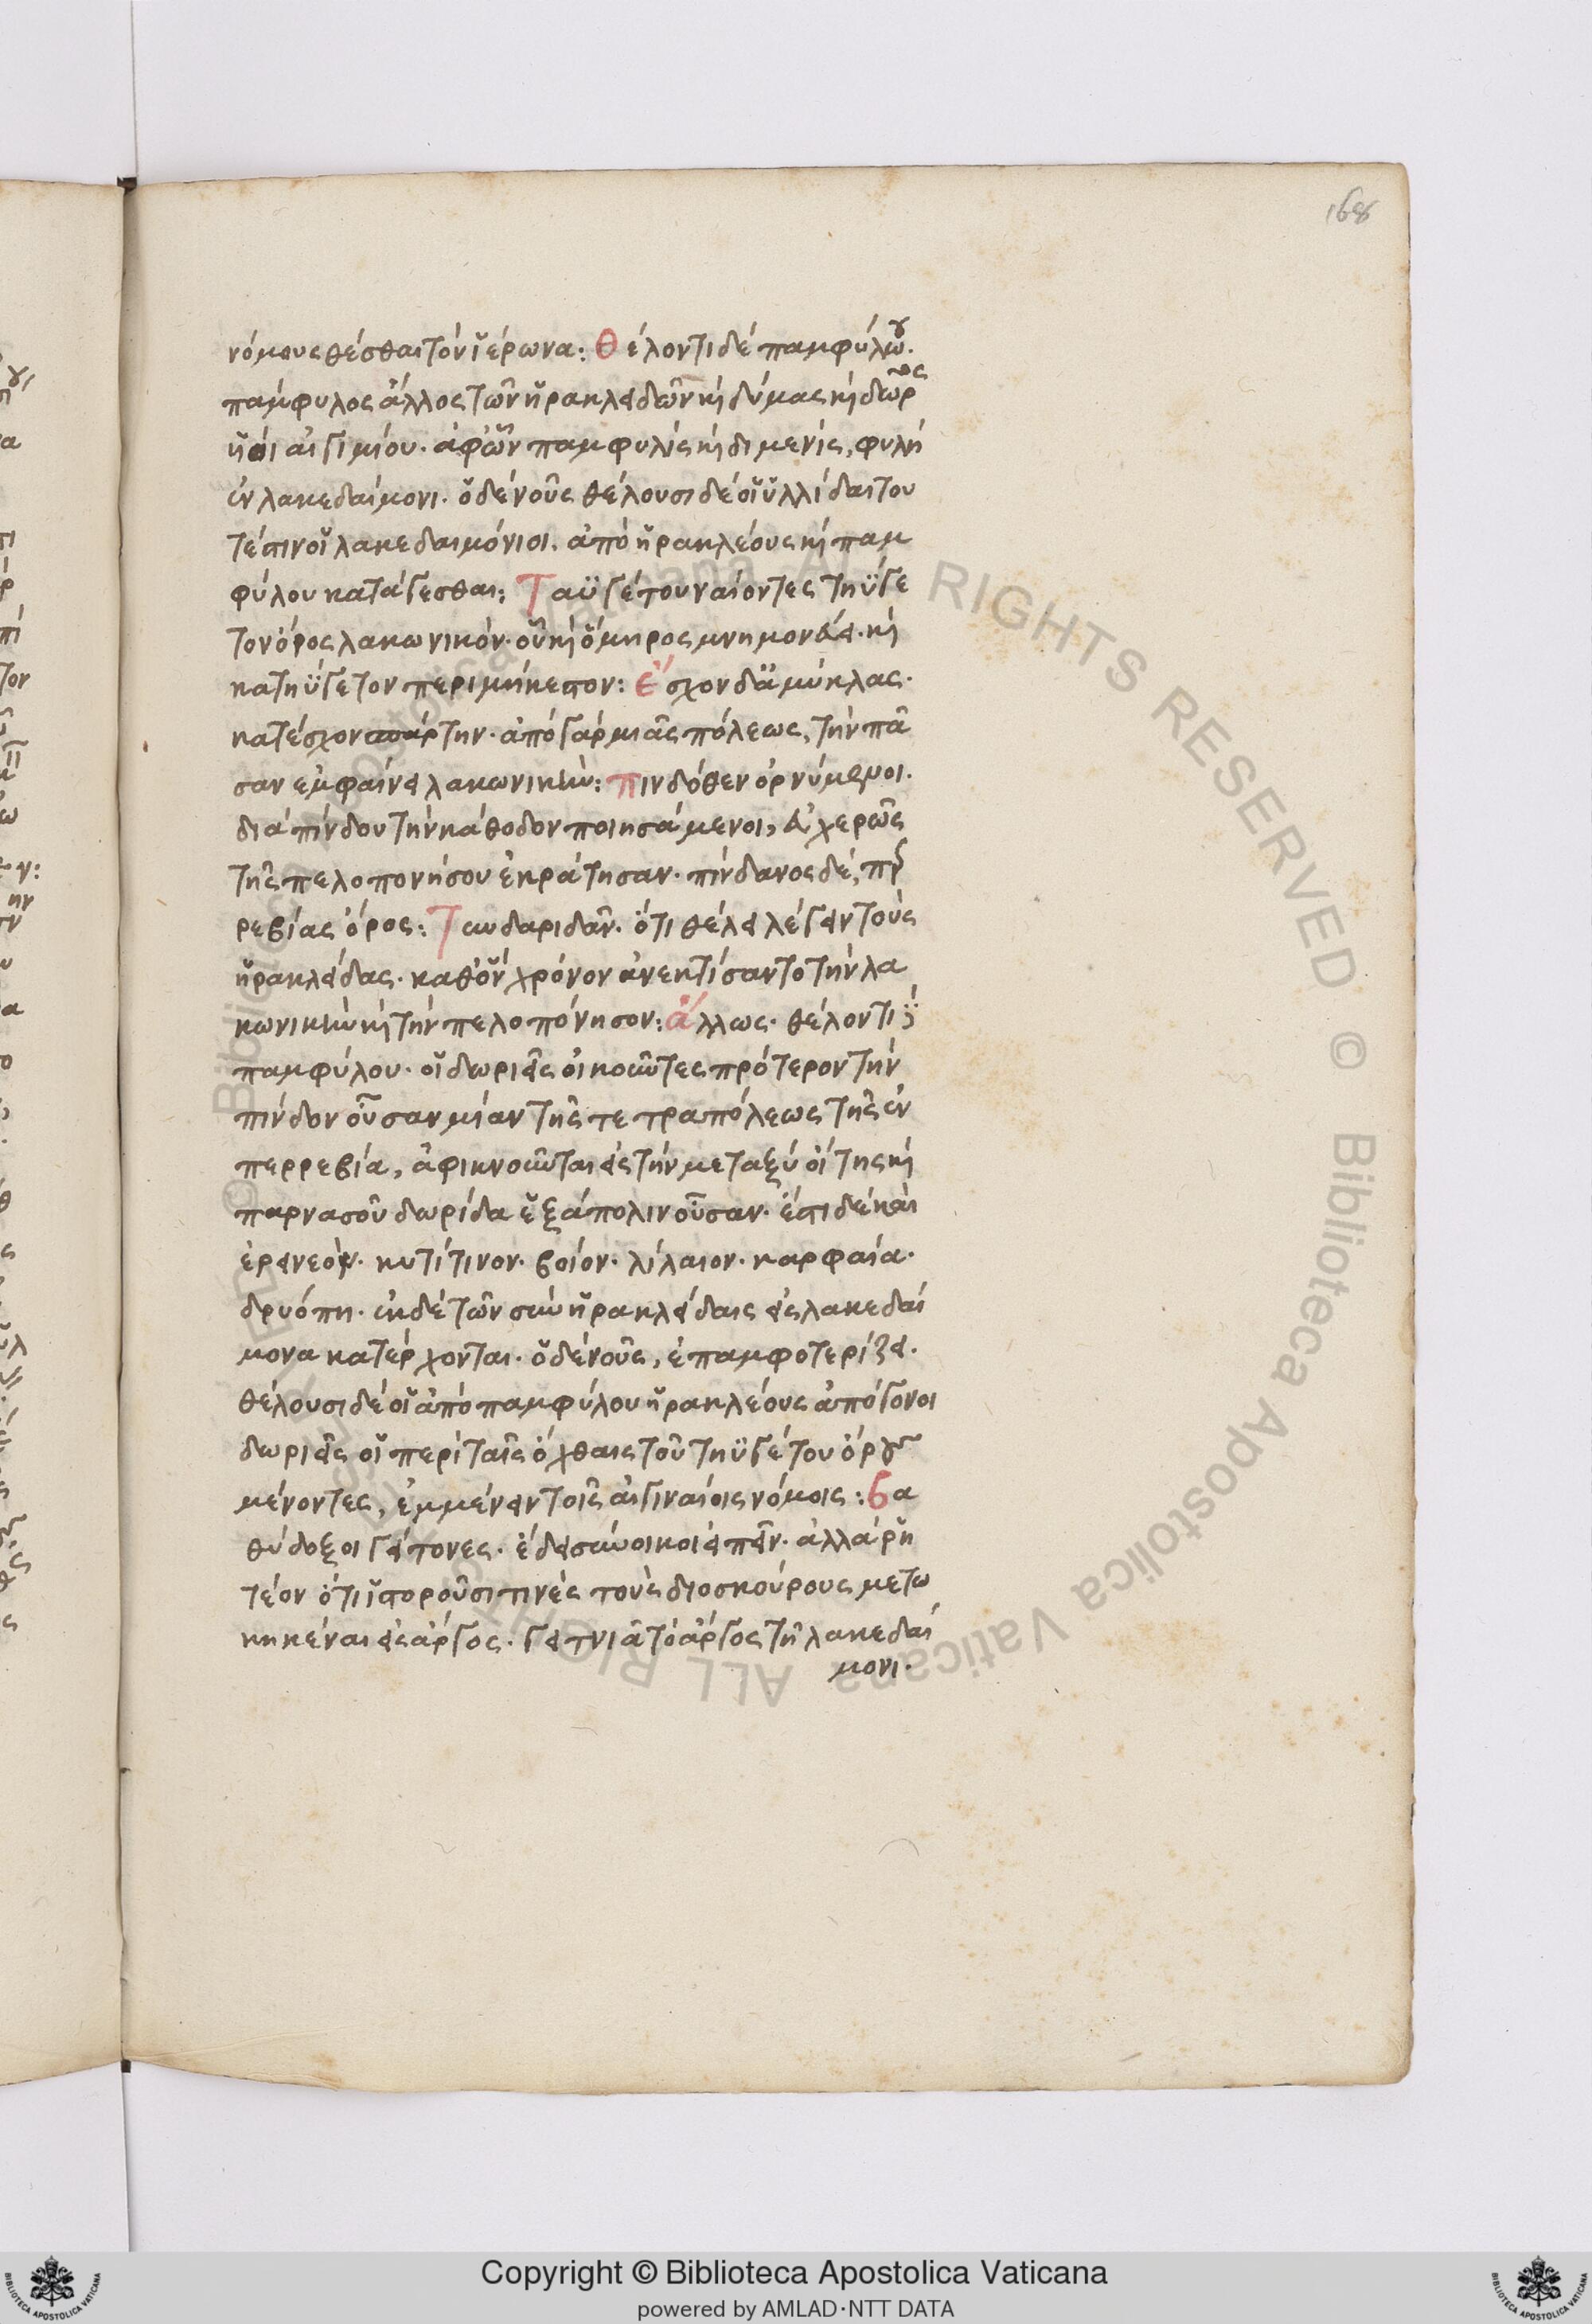 168
νόμους θέσθαι τὸν ἱέρωνα: Θέλοντι δέ παμφύλου.
πάμφυλος ἄλλος τῶν ἡρακλειδῶν κὶ δύμας κὶ δῶρος
αἰγιμίου. ἀφ' ὧν παμφυλίς κὶ διμενίς, φυλή
ἐν λακεδαίμονι. ὁ δέ νοῦς θέλουσι δέ οἱ ὑλλίδαι του
τέστιν οἱ λακεδαιμόνιοι. ἀπό ἡρακλέους κὶ παμ
φύλου κατάγεσθαι: Ταϋγέτου ναίοντες τηΰγε
τον ὄρος λακωνικόν. οὗ κὶ ὅμηρος μνημονεύει. κὶ
κατηΰγετον περιμήκεστον: Ἔσχον δ' ἀμύκλας.
κατέσχον σπάρτην. ἀπό γάρ μιᾶς πόλεως, τὴν πᾶ
σαν ἐμφαίνει λακωνικήν: πινδόθεν ὀρνύμενοι.
διά πίνδου τὴν κάθοδον ποιησάμενοι, εὐχερῶς
τῆς πελοπονήσου ἐκράτησαν. πίνδανος δέ, περ
ρεβίας ὄρος: Τυνδαριδᾶν. ὅτι θέλει λέγειν τοὺς
ἡρακλείδας. καθ' ὅν χρόνον ἀνεκτίσαντο τὴν λα
κωνικήν κὶ τὴν πελοπόνησον: ἄλλως. θέλοντι
παμφύλου. οἱ δωριεῖς οἰκοῦντες πρότερον τὴν
πίνδον οὖσαν μίαν τῆς τετραπόλεως τῆς ἐν
περρεβία, ἀφικνοῦνται εἰς τὴν μεταξύ οἴτης κὶ
παρνασοῦ δωρίδα ἑξάπολιν οὖσαν. ἔστι δέ καὶ
ἐρινεόν. κυτίτινον. βοίον. λίλαιον. καρφαία.
δρυόπη. ἐκ δέ τῶν σύν ἡρακλείδαις εἰς λακεδαί
μονα κατέρχονται. ὁ δέ νοῦς, ἐπαμφοτερίζει.
θέλουσι δέ οἱ ἀπό παμφύλου ἡρακλέους ἀπόγονοι
δωριεῖς οἱ περί ταῖς ὄχθαις τοῦ τηϋγέτου ὄρους
μένοντες, ἐμμένειν τοῖς αἰγιναίοις νόμοις: βα
θύδοξοι γείτονες. ἔδει σύνοικοι εἰπεῖν. ἀλλά ῥη
τέον ὅτι ἱστοροῦσι τινές τούς διοσκούρους μετω
κηκέναι εἰς ἄργος. γειτνιᾶ τό ἄργος τῆ λακεδαί
μονι.
Copyright © Biblioteca Apostolica Vaticana
powered by AMLAD·NTT DATA